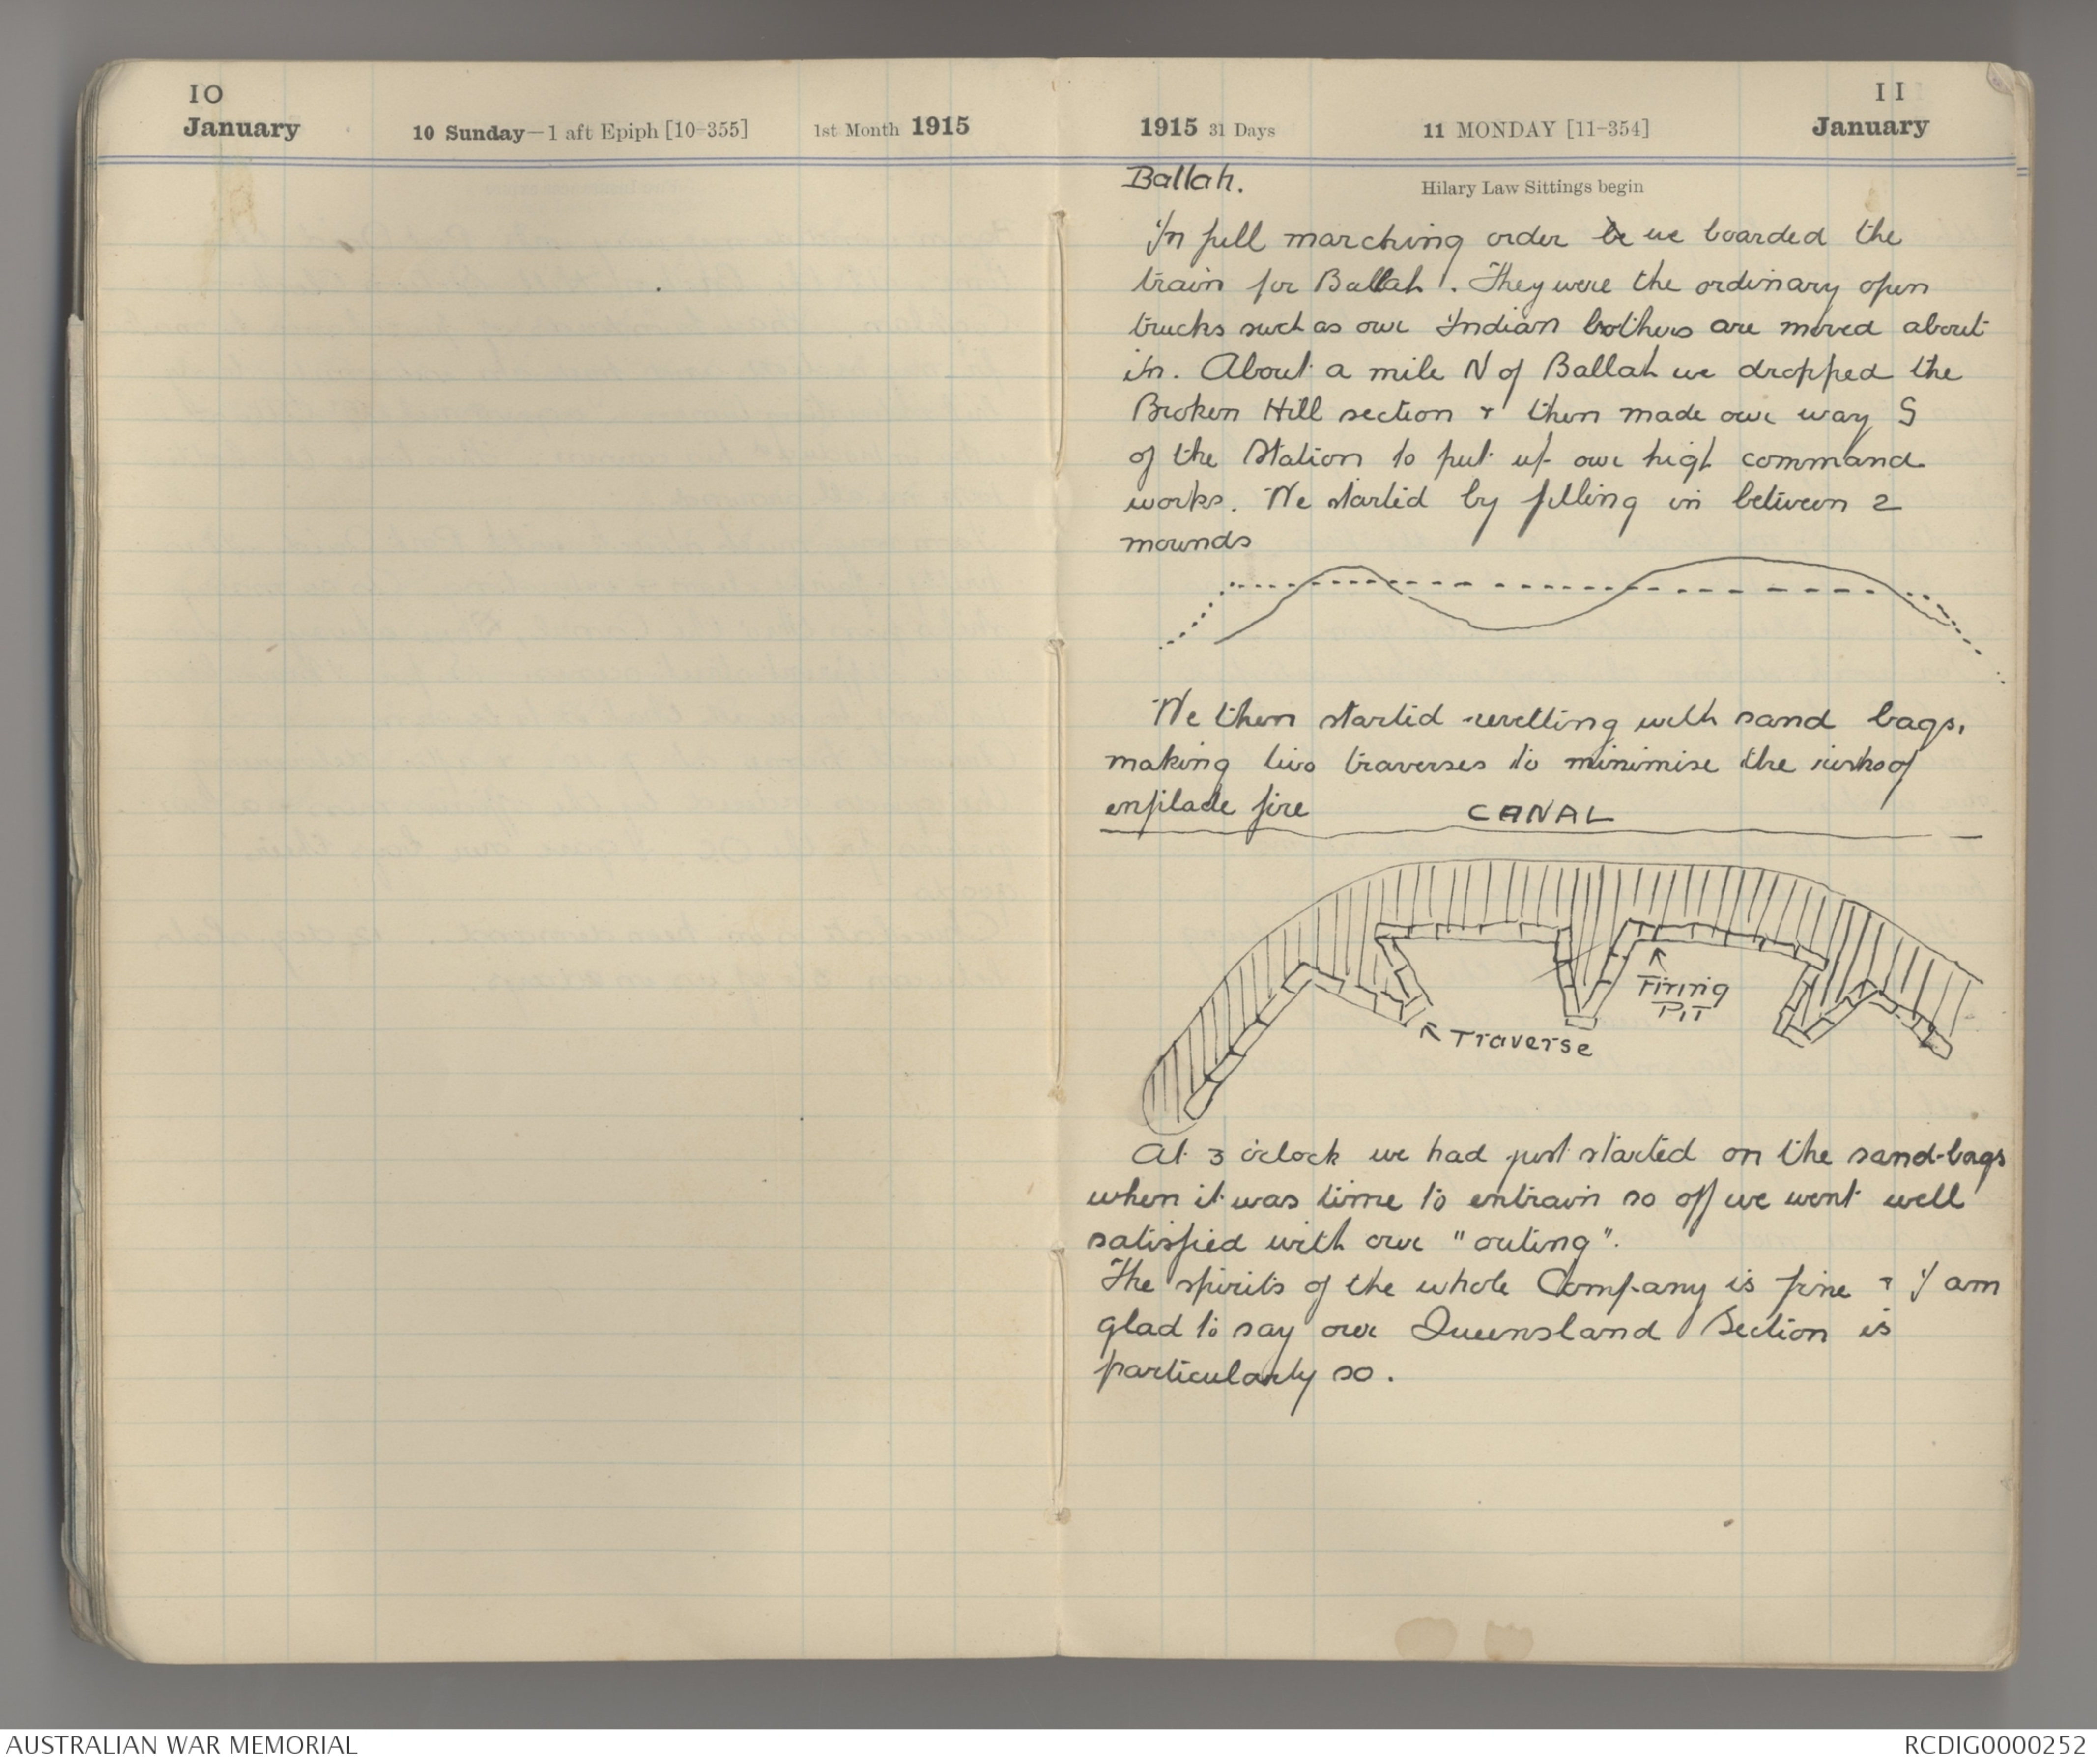 10
January
10 Sunday—1 aft Epiph [10-355]
1st Month 1915
1915 31 Days
11 MONDAY [11-354]
11
January
Hilary Law Sittings begin
Ballah.
In full marching order be we boarded the
train for Ballah. They were the ordinary open
trucks such as our Indian bothers are moved about
in. About a mile N of Ballah we dropped the
Broken Hill section & then made our way S
of the Station to put up our high command
works. We started by filling in between 2
mounds
We then started revetting with sand bags,
making two traverses to minimise the risks of
enfilade fire
CANAL
Firing
PIT
Traverse
At 3 o'clock we had just started on the sand-bags
when it was time to entrain so off we went well
satisfied with our "outing".
The spirits of the whole Company is fine & I am
glad to say our Queensland Section is
particularly so.
AUSTRALIAN WAR MEMORIAL
RCDIG0000252